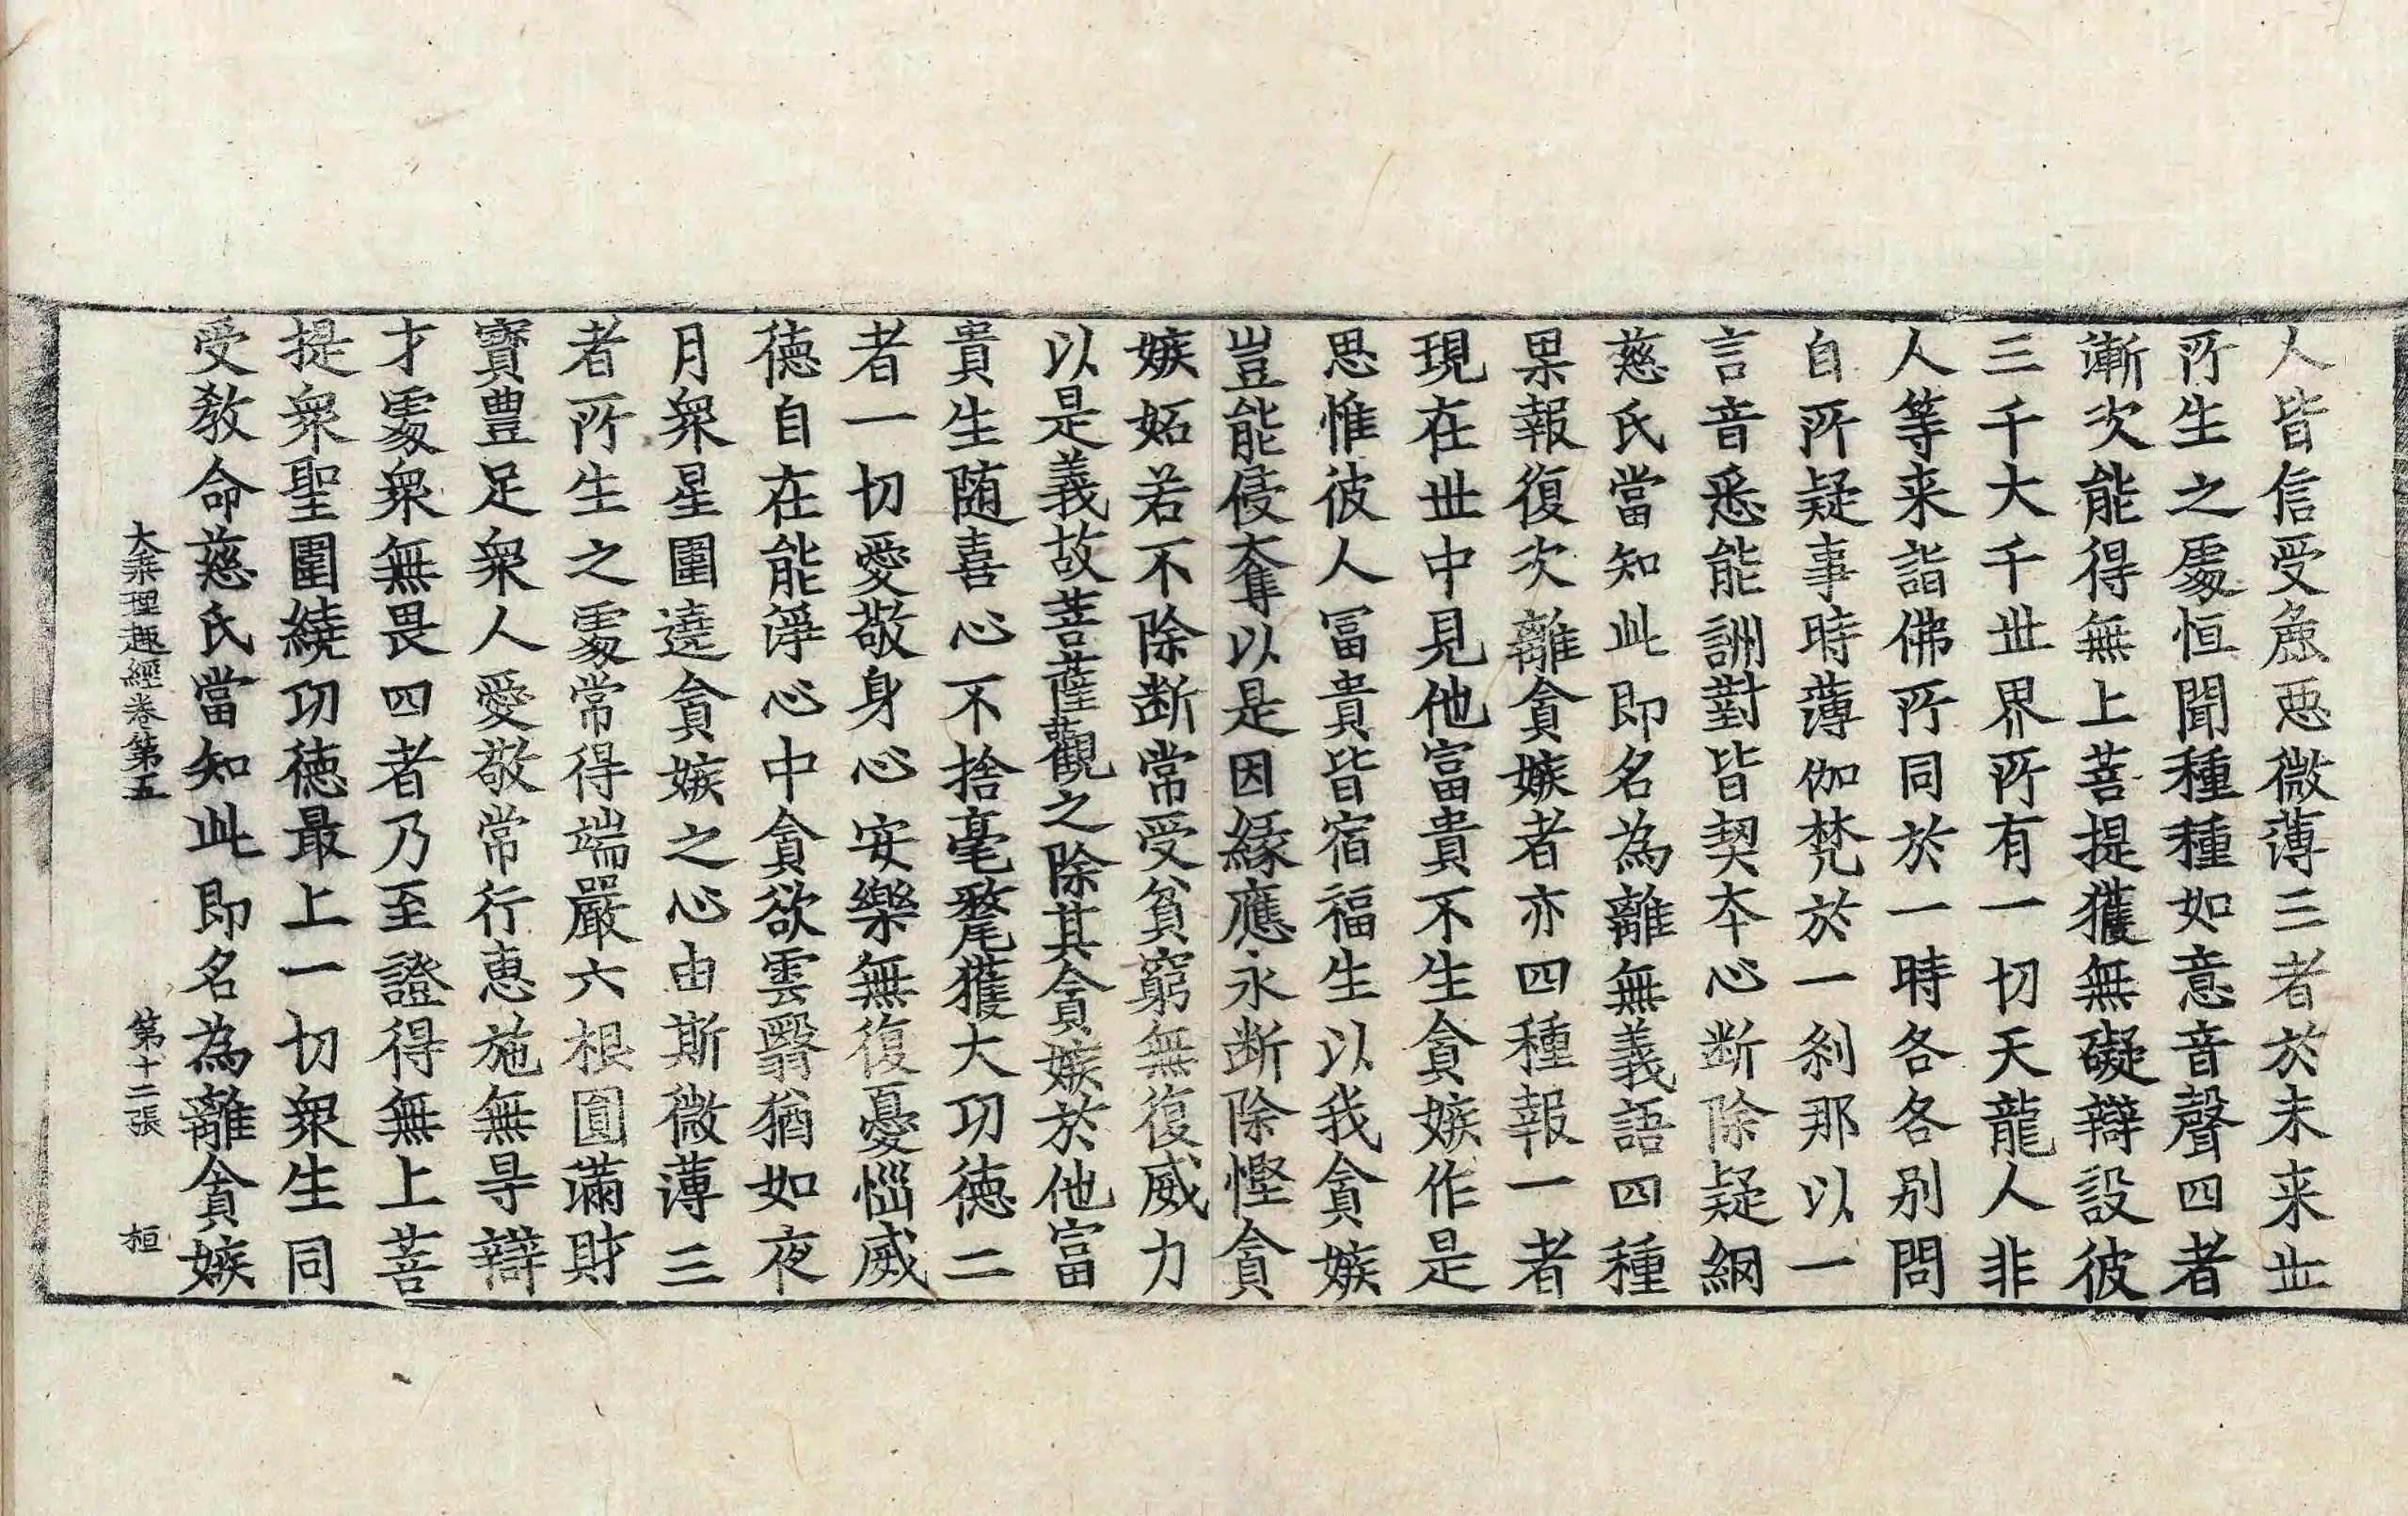 人皆信受麁惡微薄三者於未来世
所生之處恒聞種種如意音聲四者
漸次能得無上菩提獲無礙辯設彼
三千大千世界所有一切天龍人非
人等来詣佛所同於一時各各別問
自所疑事時薄伽梵於一剎那以一
言音悉能詶對皆契本心斷除疑網
慈氏當知此即名為離無義語四種
果報復次離貪嫉者亦四種報一者
現在世中見他富貴不生貪嫉作是
思惟彼人冨貴皆宿福生以我貪嫉
豈能侵奪以是因緣應永断除慳貪
嫉妬若不除断常受貧窮無復威力
以是義故菩薩觀之除其貪嫉於他富
貴生随喜心不捨毫氂獲大功徳二
者一切愛敬身心安樂無復憂惱威
徳自在能淨心中貪欲雲翳猶如夜
月衆星圍遶貪嫉之心由斯微薄三
者所生之處常得端嚴六根圓滿財
寳豊足衆人愛敬常行恵施無㝵辯
才處衆無畏四者乃至證得無上菩
提衆聖圍繞功徳最上一切衆生同
受教命慈氏當知此即名為離貪嫉
大乘理趣經卷第五 第十二張 桓